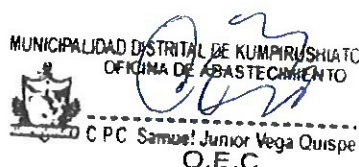 MUNICIPALIDAD DISTRITAL DE KUMPIRUSHIATO
OFICINA DE ABASTECIMIENTO
C P C Samuel Junior Vega Quispe
O.E.C.